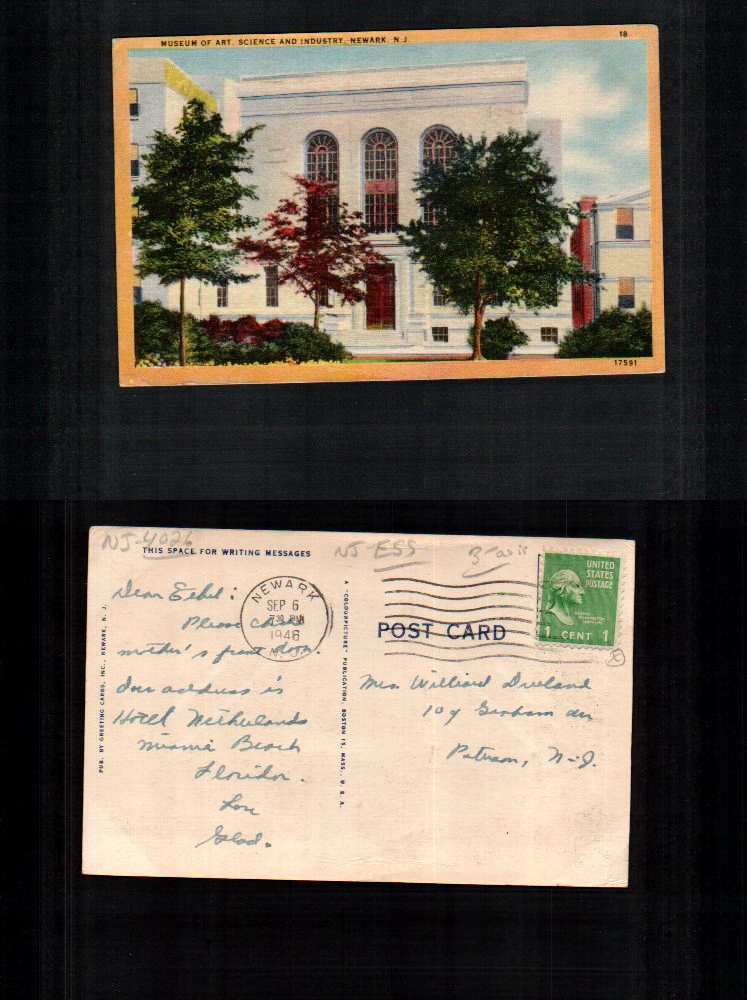 MUSEUM OF ART, SCIENCE AND INDUSTRY, NEWARK, N. J.
18
17591
NJ-4026
NJ-ESS
THIS SPACE FOR WRITING MESSAGES
Dear Ethel:
Please
mother's front door.
Our address is
Hotel Netherlands
Miami Beach
Florida.
Love
Glad.
NEWARK
SEP 6
7 30 PM
1946
N.J.
PUB. BY GREETING CARDS, INC., NEWARK, N. J.
A "COLOURPICTURE" PUBLICATION, BOSTON 15, MASS., U. S. A.
POST CARD
UNITED
STATES
POSTAGE
1 CENT 1
Mrs. Williard
109 Graham Av
Paterson, N-J.